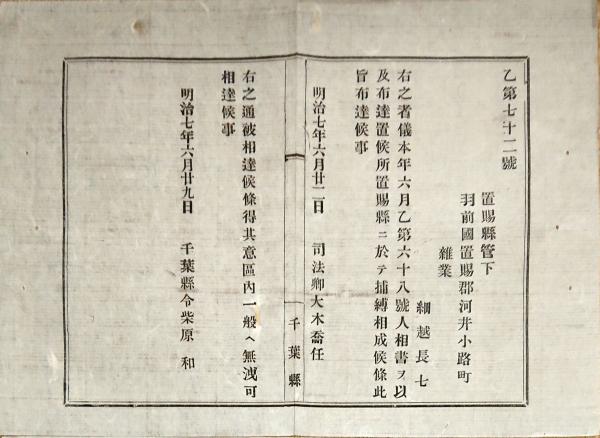 乙第七十二號
置賜縣管下
羽前國置賜郡河井小路町
雜業
細越長七
右之者儀本年六月乙第六十八號人相書ヲ以
及布達置候所置賜縣ニ於テ捕縛相成候條此
旨布達候事
明治七年六月廿二日 司法卿大木喬任
千葉縣
右之通被相達候條得其意區內一般ヘ無洩可
相達候事
明治七年六月廿九日 千葉縣令柴原和